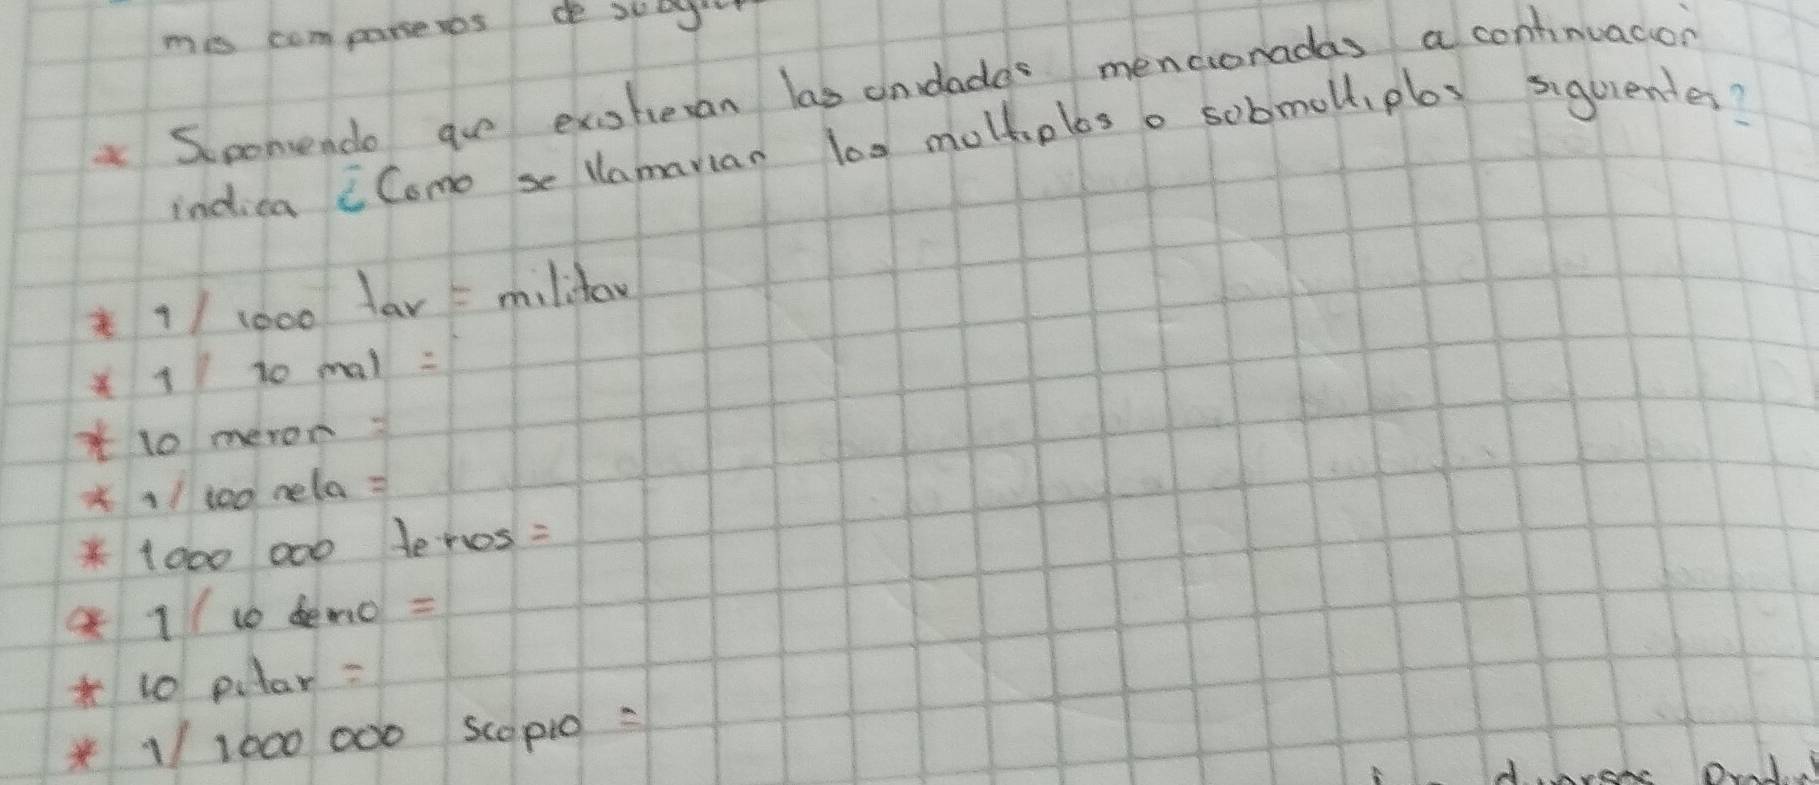 mis companeros de
* Suponiendo que existieran las unidades mencionadas a continuación
indica ¿Como se llamarian los multiplos o submultiplos siguientes?
* 1/1000 tar = militar
* 1/10 mal =
* 10 meron =
* 1/100 nela =
* 1000 000 terios =
* 1/10 demo =
* 10 pilar =
* 1/1000 000 scopio =